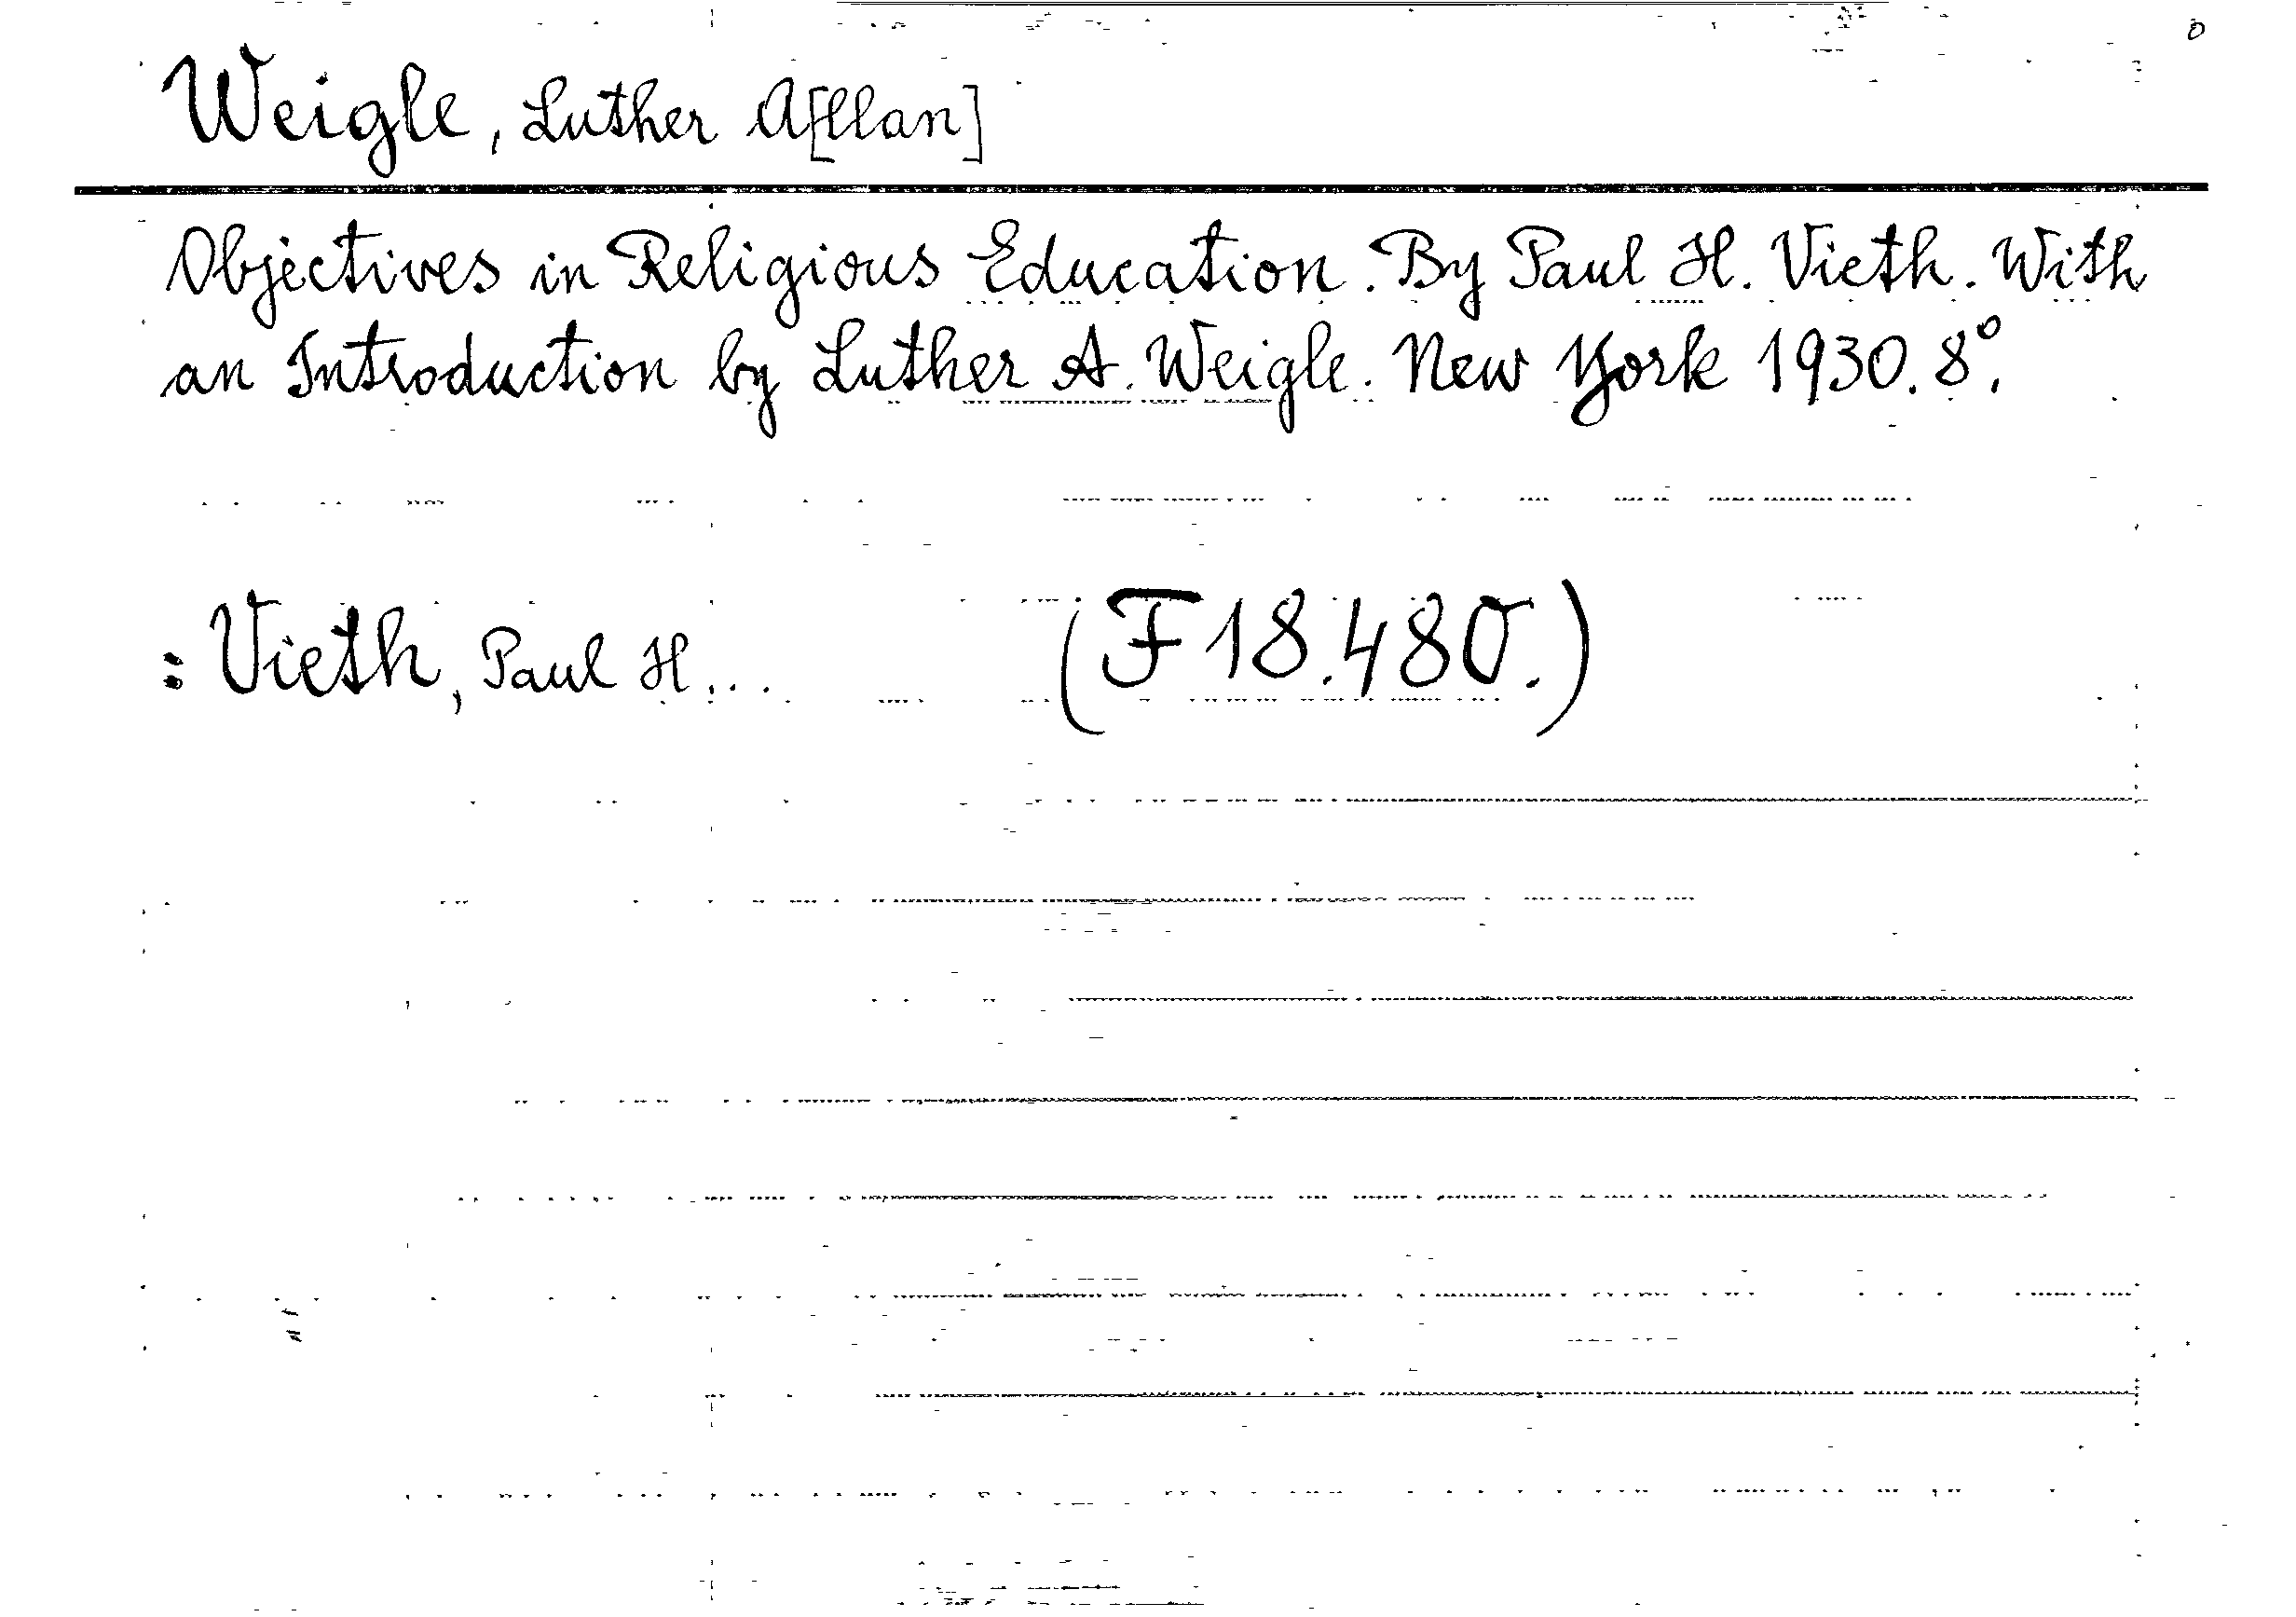 Weigle, Luther A[llan]
Objectives in Religious Education. By Paul H. Vieth. With
an Introduction by Luther A. Weigle. New York 1930. 8°.
: Vieth, Paul H... (F 18.480.)